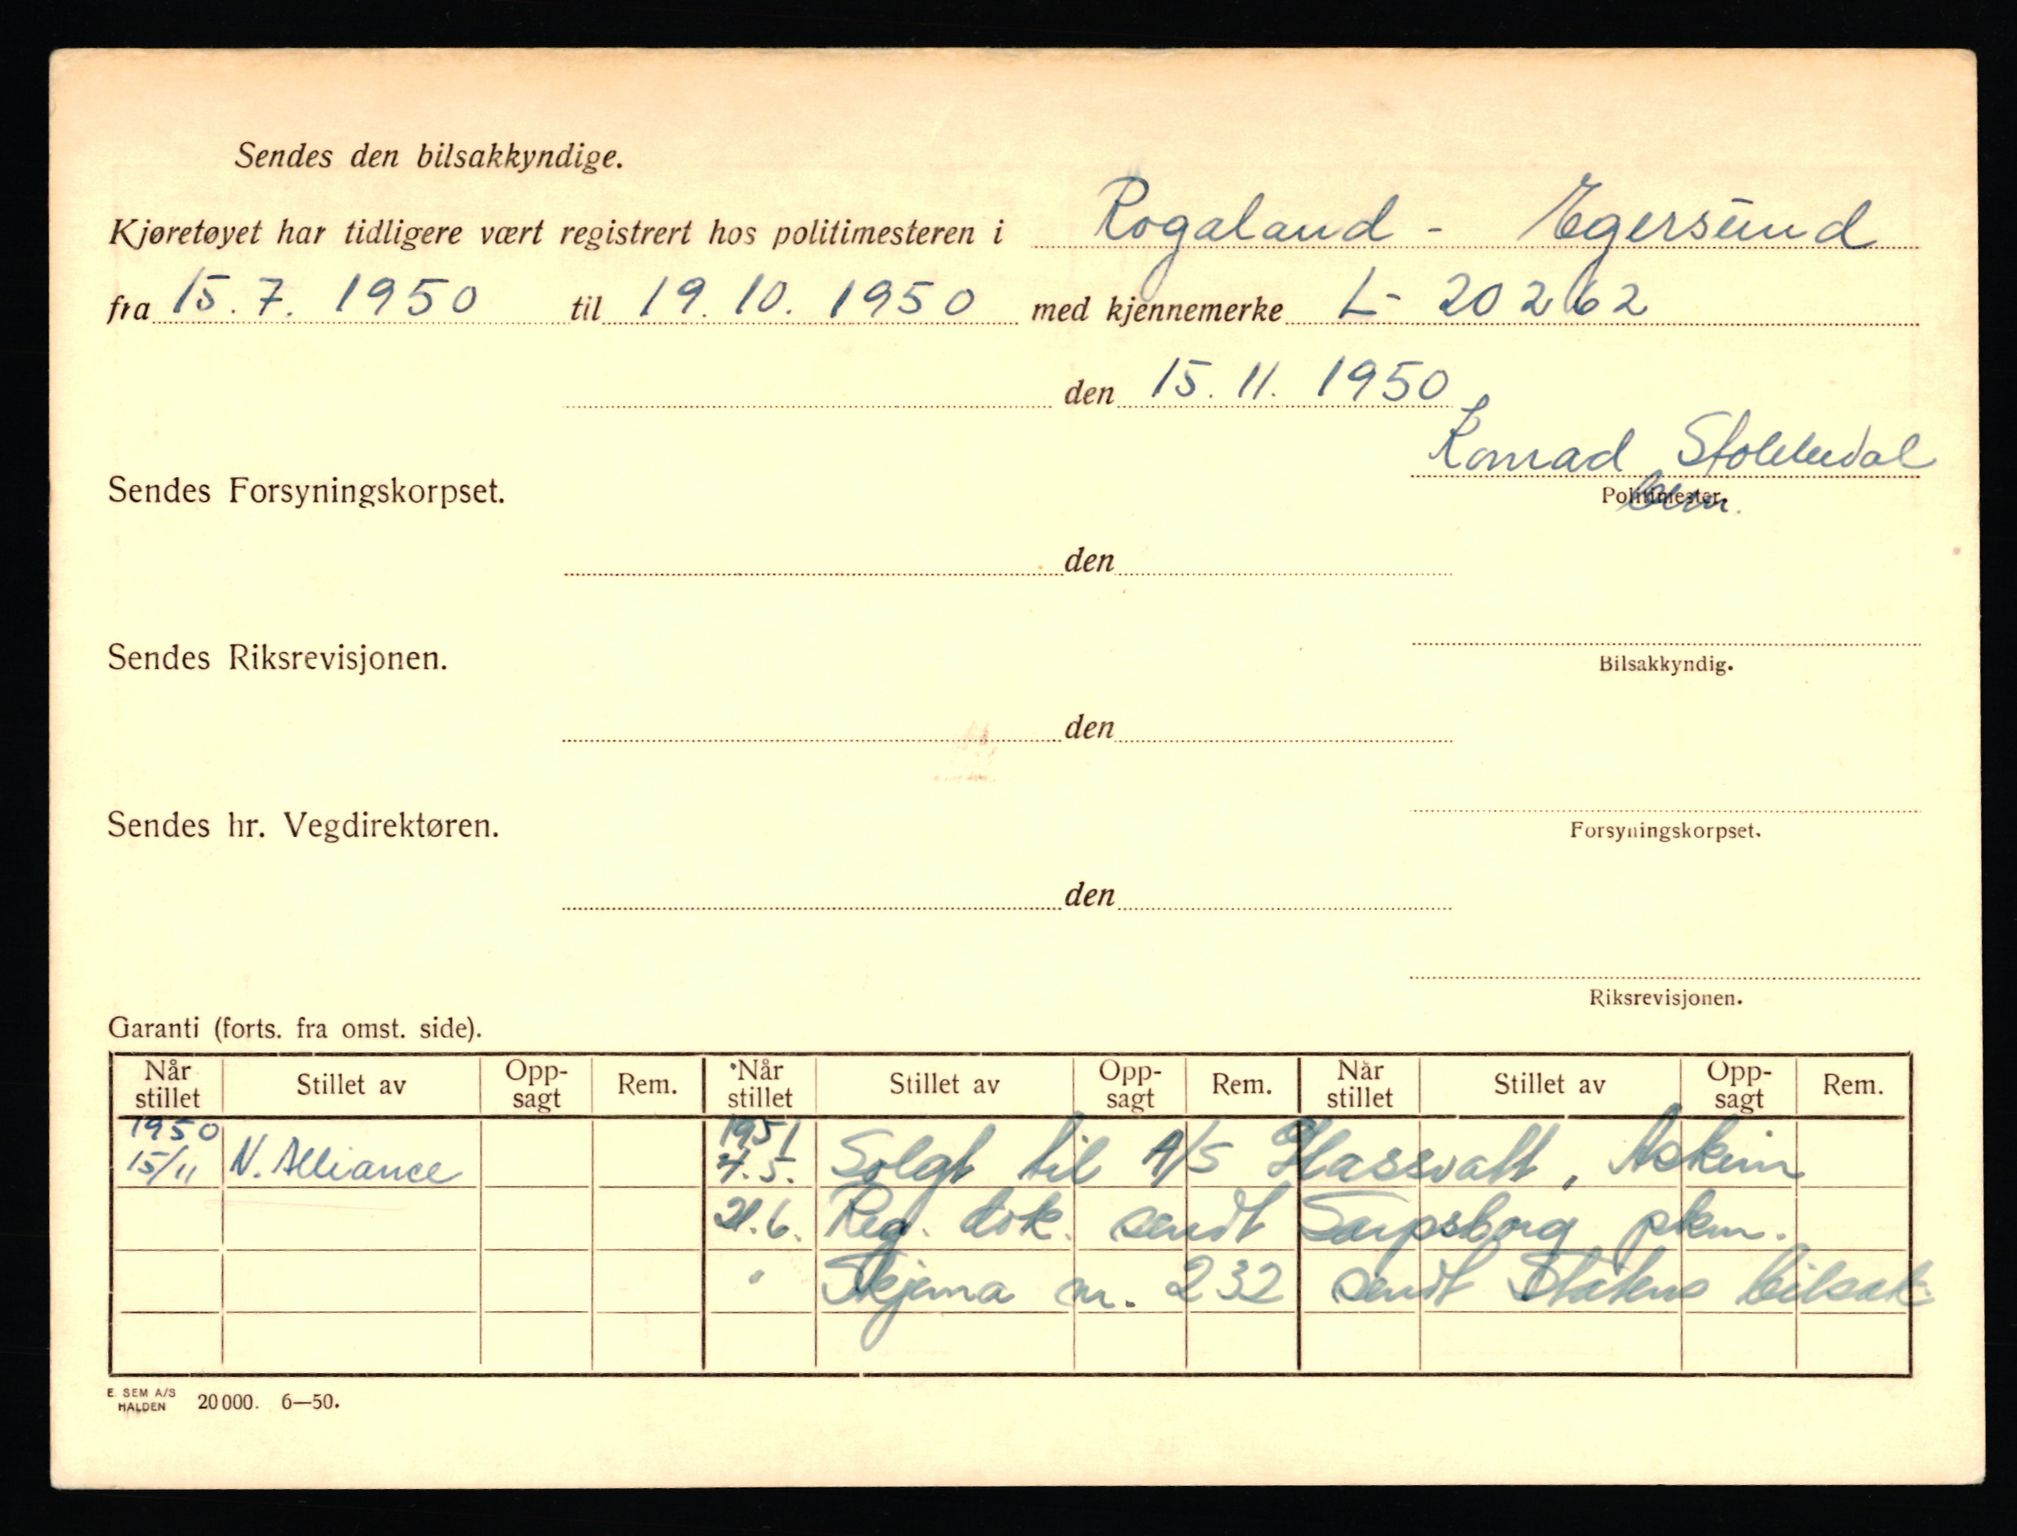 Sendes den bilsakkyndige.
Kjøretøyet har tidligere vært registrert hos politimesteren i Rogaland - Egersund
fra 15.7. 1950 til 19.10. 1950 med kjennemerke L- 20262
den 15.11. 1950
Konrad
Sendes Forsyningskorpset.
Politimester.
den
Sendes Riksrevisjonen.
Bilsakkyndig.
den
Sendes hr. Vegdirektøren.
Forsyningskorpset.
den
Riksrevisjonen.
Garanti (forts. fra omst. side).
Når stillet Stillet av Opp-sagt Rem. Når stillet Stillet av Opp-sagt Rem. Når stillet Stillet av Opp-sagt Rem.
1950 1951
15/11 N. Alliance 7.5. Solgt til A/S Glassvatt, Askim
21.6. Reg. dok. sendt Sarpsborg pkm.
" Skjema nr. 232 sendt Statens bilsak.
E. SEM A/S
HALDEN 20000. 6—50.